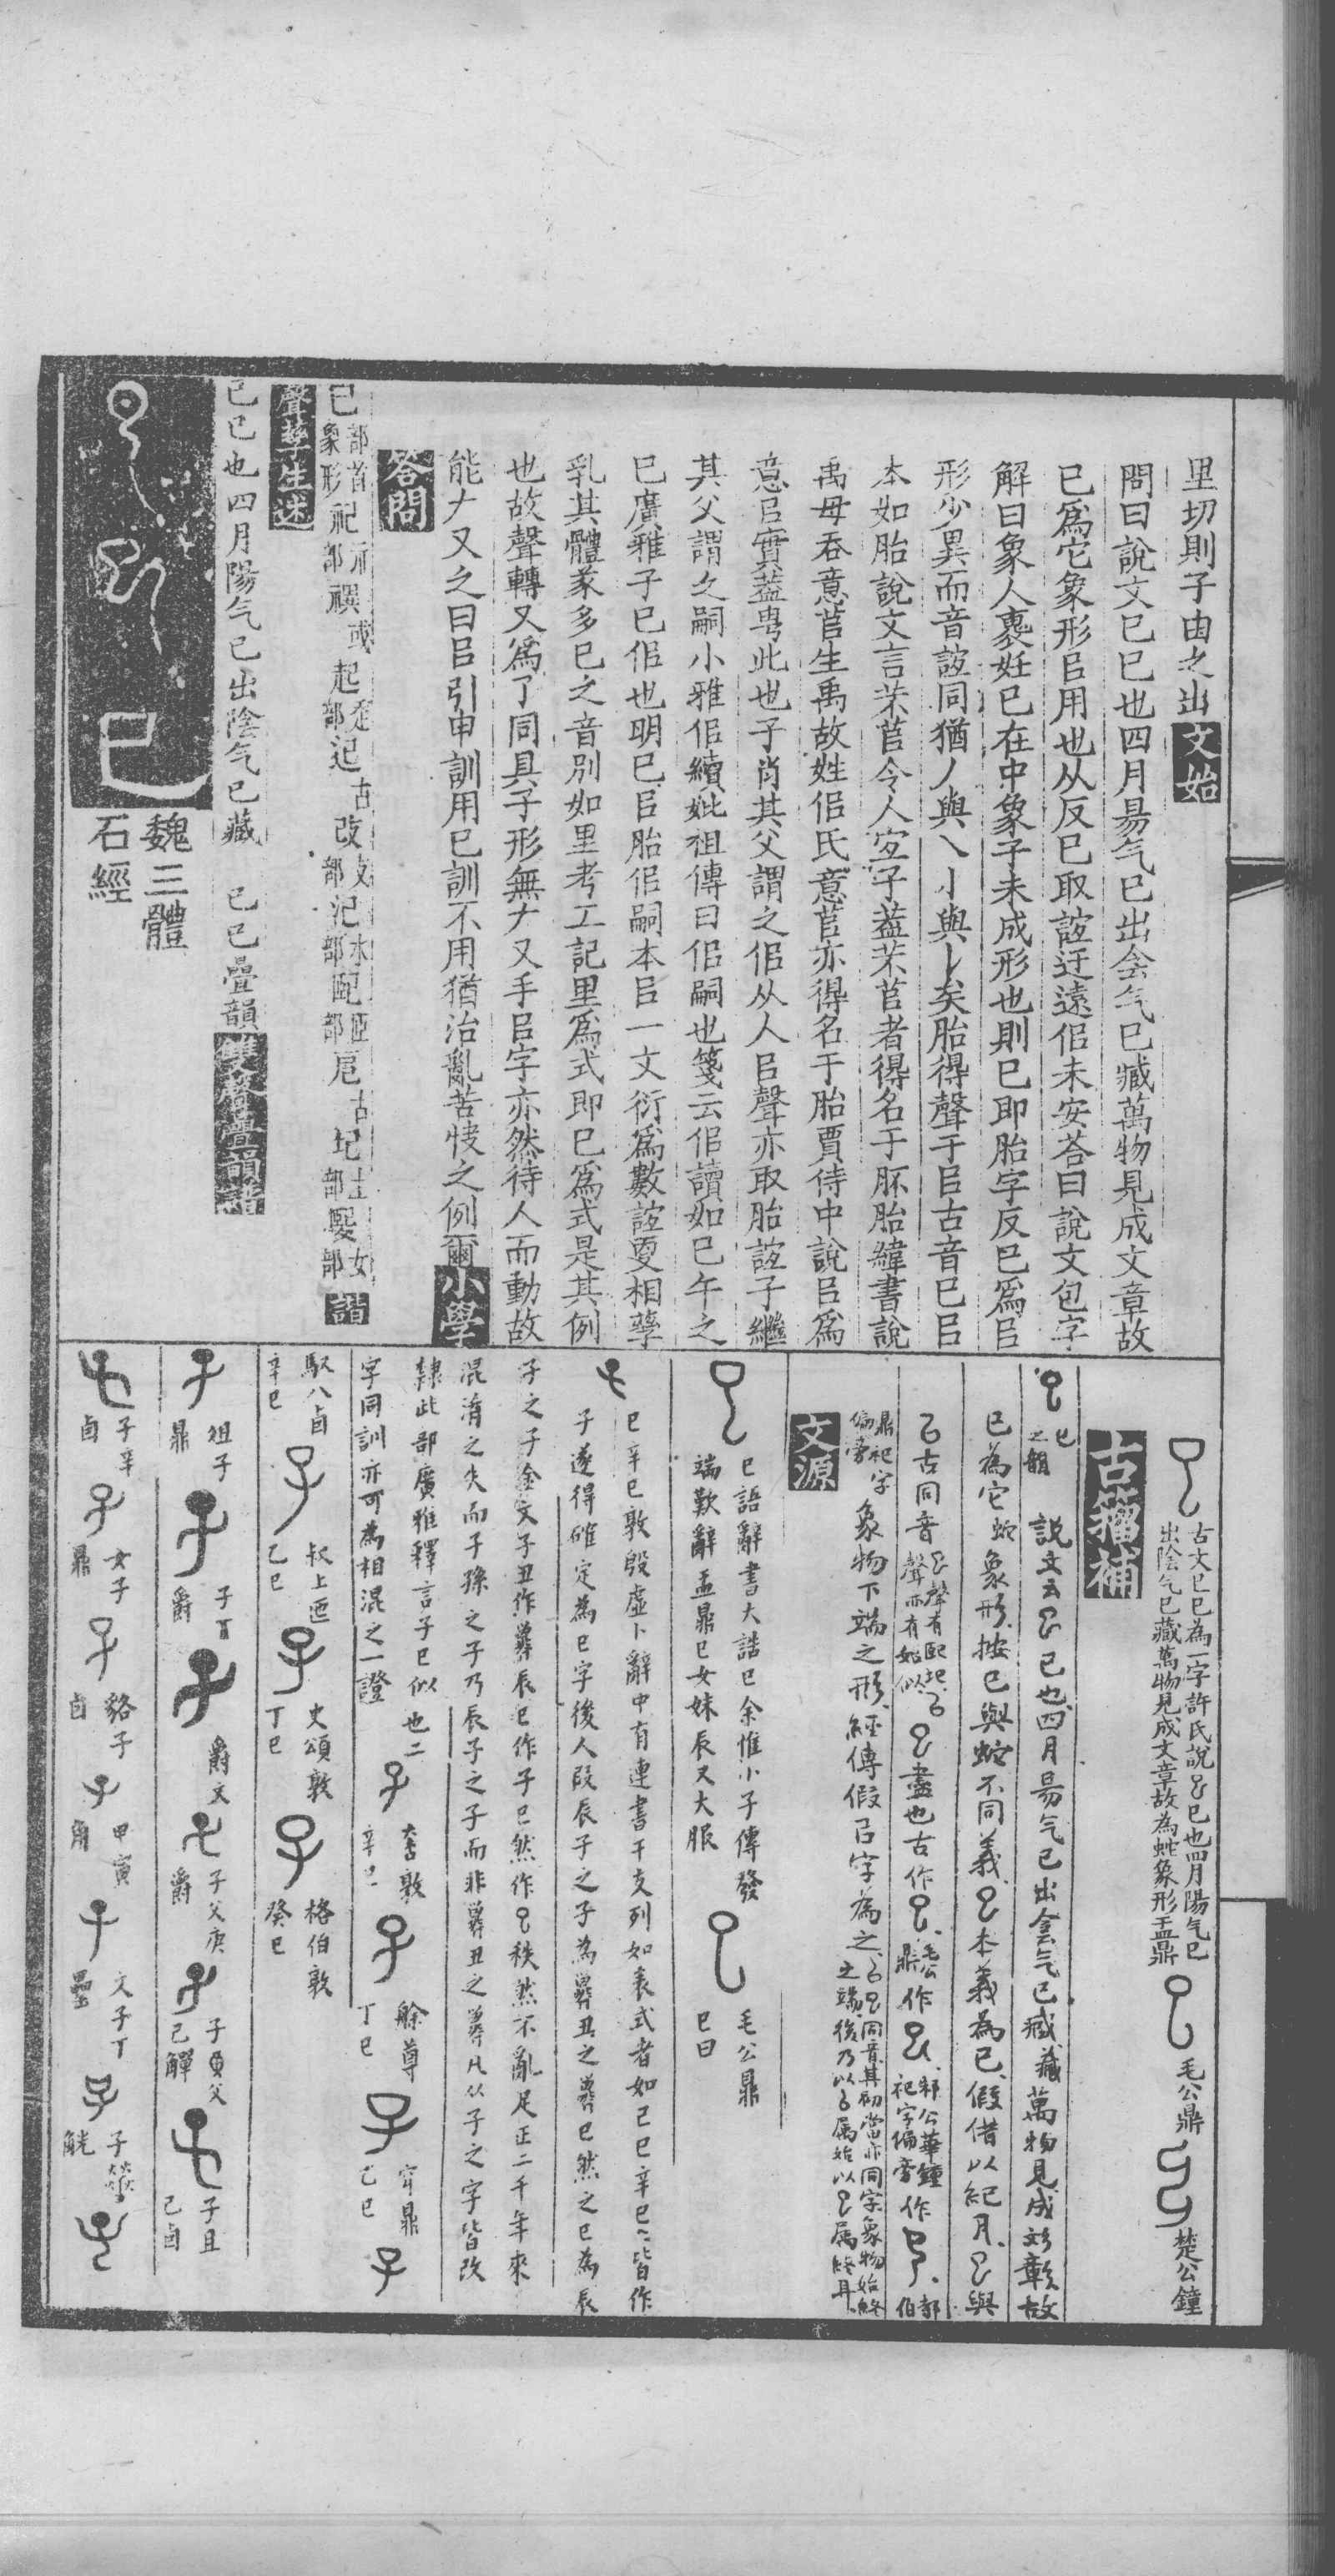 里切則子由之出文始
問曰說文巳巳也四月昜气巳出会气巳臧萬物見成文章故
巳爲它象形㠯用也从反巳取誼迂遠佀未安荅曰說文包字
解曰象人裹妊巳在中象子未成形也則巳即胎字反巳爲㠯
形少異而音誼同猶丿與乀亅與𠄌矣胎得聲于㠯古音巳㠯
本如胎說文言苤苢令人宐子葢苤苢者得名于胚胎緯書說
禹母吞意苢生禹故姓佀氏意苢亦得名于胎賈侍中說㠯爲
意㠯實葢粵此也子肖其父謂之佀从人㠯聲亦取胎誼子繼
其父謂之嗣小雅佀續妣祖傳曰佀嗣也箋云佀讀如巳午之
巳廣雅子巳佀也明巳㠯胎佀嗣本㠯一文衍爲數誼㪅相孳
乳其體彖多巳之音別如里考工記里爲式即巳爲式是其例
也故聲轉又爲了同具子形無𠂇又手㠯字亦然待人而動故
能𠂇又之曰㠯引申訓用巳訓不用猶治亂苦快之例爾小學
答問
巳部首象形祀示部禩或起走部𨑔古改攴部汜水部𦣞𦣞部㔾古圯土部㜯女部諧
聲孳生述
巳巳也四月陽气巳出陰气巳藏 巳巳疊韻雙聲疊韻譜
魏三體
石經
古文巳巳為一字許氏說巳也四月陽气巳
出陰气巳藏萬物見成文章故為蛇象形盂鼎
毛公鼎
楚公鐘
古籀補
巳之韻
說文云巳也四月昜气巳出侌气巳臧藏萬物見成彣彰故
巳為它蛇象形按巳與蛇不同義本義為巳假借以紀月與
㠯古同音聲有熙圯㠯聲亦有始似盡也古作毛公鼎作邾公華鐘祀字偏旁作郜伯
鼎祀字偏旁象物下端之形經傳假㠯字為之同音其初當亦同字象物始終之端後乃以㠯属始以属終耳
文源
巳語辭書大誥巳余惟小子傳發
端歎辭盂鼎巳女妹辰又大服
毛公鼎
巳曰
巳辛巳敦殷虛卜辭中有連書干支列如表式者如己巳辛巳皆作
子遂得確定為巳字後人叚辰子之子為㜽丑之㜽巳然之巳為辰
子之子金文子丑作㜽辰巳作子巳然作秩然不亂足正二千年來
混淆之失而子孫之子乃辰子之子而非㜽丑之㜽凡从子之字皆改
隸此部廣雅釋言子巳似也二
字同訓亦可為相混之一證
敦辛巳
艅尊丁巳
鼎乙巳
馭八卣辛巳
叔上匜乙巳
史頌敦丁巳
格伯敦癸巳
俎子鼎
子丁爵
爵文
子父庚爵
子父己觶
子且己卣
子辛卣
女子鼎
貉子卣
甲寅角
文子丁罍
子燮觥